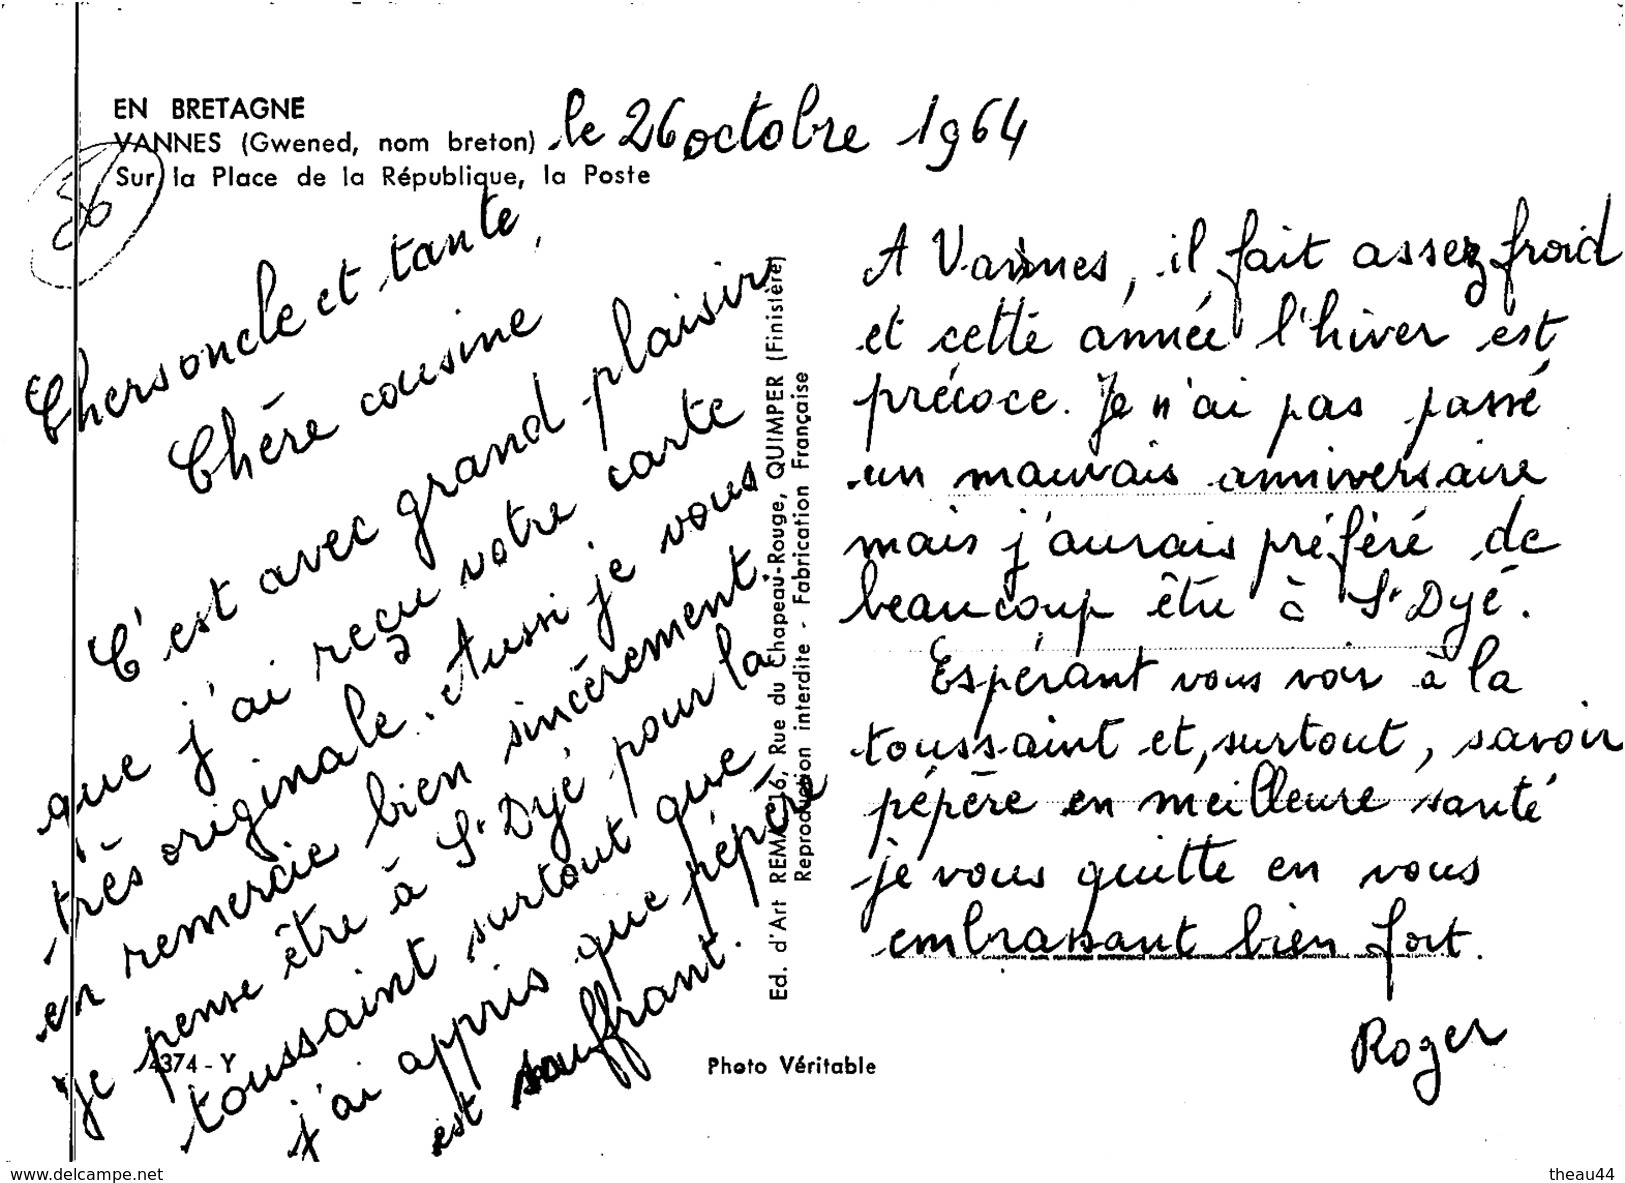 EN BRETAGNE
VANNES (Gwened, nom breton)
Sur la Place de la République, la Poste
le 26 octobre 1964
56
Chers oncle et tante,
Chère cousine
C'est avec grand plaisir
que j'ai reçu votre carte
très originale. Aussi je vous
en remercie bien sincèrement.
Je pense être à St Dyé pour la
toussaint surtout que
j'ai appris que pépère
est souffrant.
A Vannes, il fait assez froid
et cette année l'hiver est
précoce. Je n'ai pas passé
un mauvais anniversaire
mais j'aurais préféré de
beaucoup être à St Dyé.
Espérant vous voir à la
toussaint et, surtout, savoir
pépère en meilleure santé
je vous quitte en vous
embrassant bien fort.
Roger
Ed. d'Art REMA, 16, Rue du Chapeau-Rouge, QUIMPER (Finistère)
Reproduction interdite - Fabrication Française
4374 - Y
Photo Véritable
www.delcampe.net
theau44